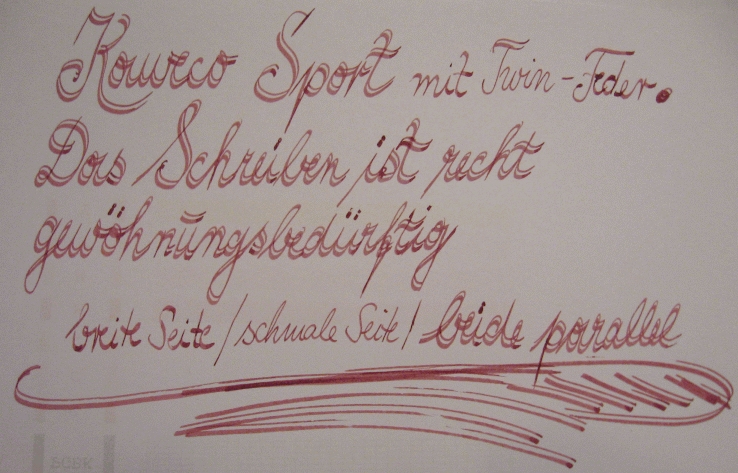 Kaweco Sport mit Twin-Feder.
Das Schreiben ist recht
gewöhnungsbedürftig
breite Seite / schmale Seite / beide parallel